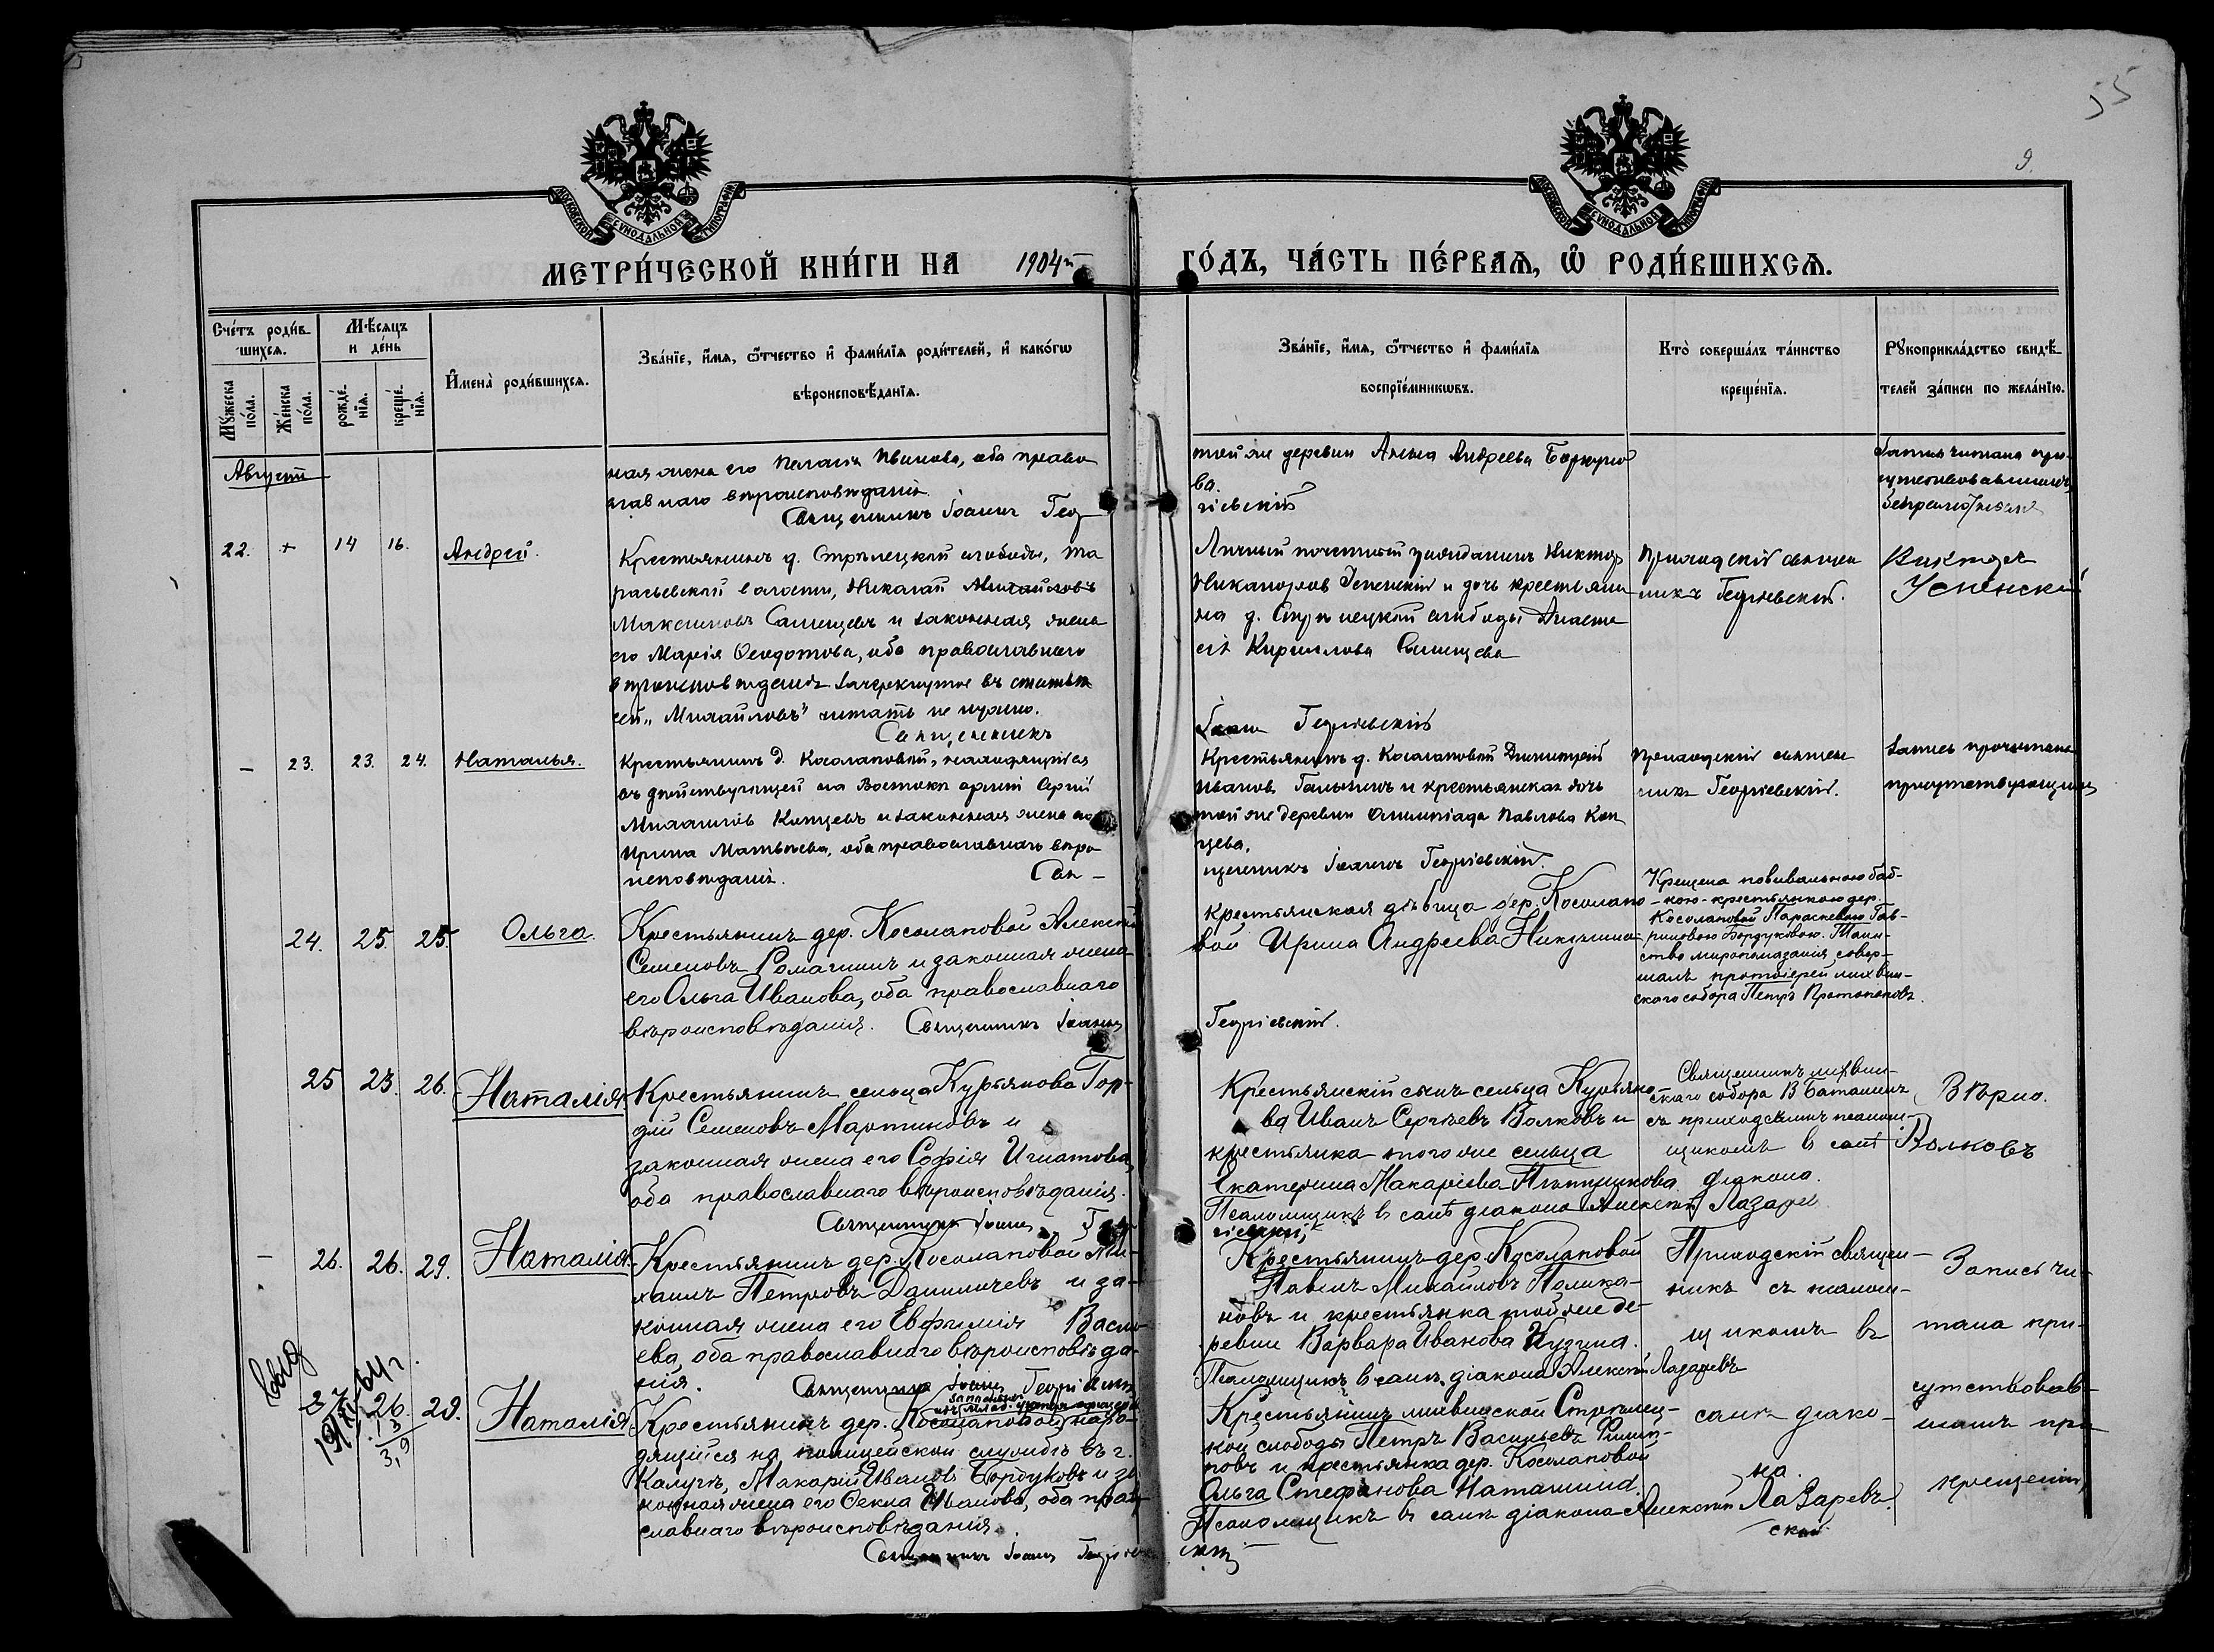 55
9.
МОСКОВСКОЙ СѴНОДАЛЬНОЙ ТИПОГРАФІИ
МОСКОВСКОЙ СѴНОДАЛЬНОЙ ТИПОГРАФІИ
МЕТРИ́ЧЕСКОЙ КНИ́ГИ НА 1904й ГО́ДЪ, ЧА́СТЬ ПЕ́РВАѦ, Ѡ҆ РОДИ́ВШИХСѦ.
Сче́тъ роди́в-
шихсѧ.
Мꙋ́жеска по́ла.
Же́нска по́ла.
Мѣ́сѧцъ
и де́нь
рожде́-
нїѧ.
креще́-
нїѧ.
И҆мена̀ роди́вшихсѧ.
Зва́нїе, и҆́мѧ, ѻ҆́тчество и҆ фами́лїѧ роди́телей, и҆ како́гѡ
вѣроисповѣ́данїѧ.
Зва́нїе, и҆́мѧ, ѻ҆́тчество и҆ фами́лїѧ
воспрїе́мникѡвъ.
Кто̀ соверша́лъ та́инство
креще́нїѧ.
Рꙋкоприкла́дство свидѣ́-
телей за́писи по жела́нїю.
Августъ
ная жена его Пелагія Иванова, оба право
славнаго вѣроисповѣданія.
Священникъ Іоаннъ Геор
той же деревни Анна Андреева Бордуко
ва.
гіевскій
22. + 14 16. Андрей.
Крестьянинъ д. Стрѣлецкой слободы,
волости, Николай Михайловъ
Максимовъ и законная жена
его Марія Ѳеодотова, оба православнаго
вѣроисповѣданія зачеркнутое въ статьѣ
сей „Михайловъ" читать не нужно.
Священникъ
Личный почетный гражданинъ Викторъ
Никаноровъ Успенскій и дочь крестьяни
на д. Стрѣлецкой слободы Анаста
сія Кириллова
Іоаннъ Георгіевскій
Приходскій священ
никъ Георгіевскій.
Викторъ
Успенскій
– 23. 23. 24. Наталья.
Крестьянинъ д. Косолаповой, находящійся
въ дѣйствующей на Востокѣ арміи Сергій
Михаиловъ Копцевъ и законная жена его
Ирина Матвѣева, оба православнаго вѣро
исповѣданія. Свя-
Крестьянинъ д. Косолаповой Димитрій
Ивановъ и крестьянская дочь
той же деревни Олимпіада Павлова Коп
цева.
щенникъ Іоаннъ Георгіевскій.
Приходскій священ
никъ Георгіевскій.
Запись прочитана
присутствующимъ
24. 25. 25. Ольга.
Крестьянинъ дер. Косолаповой Алексѣй
Семеновъ Ромагинъ и законная жена
его Ольга Иванова, оба православнаго
вѣроисповѣданія. Священникъ Іоаннъ
крестьянская дѣвица дер. Косолапо
вой Ирина Андреева
Георгіевскій.
Крещена повивальною баб-
-кою-крестьянкою дер.
Косолаповой Параскевою Гав-
риловою Бордуковою. Таин-
ство миропомазанія совер-
шалъ протоіерей лихвин-
скаго собора Петръ Протопоповъ.
25 23. 26. Наталія.
Крестьянинъ сельца Курьянова Гор-
дій Семеновъ Мартиновъ и
законная жена его Софія Игнатова,
оба православнаго вѣроисповѣданія.
Священникъ Іоаннъ Геор
Крестьянскій сынъ сельца Курьяно-
ва Иванъ Сергѣевъ Волковъ и
крестьянка того же сельца
Екатерина Макаріева Пѣтушкова
Псаломщикъ в санѣ діакона Алексѣй Лазарев
гіевскій
Священникъ лихвин-
скаго собора В Баташинъ
съ приходскимъ псалом-
щикомъ в санѣ
діакона.
Вѣрно.
Волковъ
– 26. 26. 29. Наталія.
Крестьянинъ дер. Косолаповой Ми-
хаилъ Петровъ Данилычевъ и за-
конная жена его Евфимія Васи
ева, оба православнаго вѣроисповѣда-
нія. Священникъ Іоаннъ Георгіевск
Крестьянинъ дер. Косолаповой
Павелъ Михайловъ Полика-
новъ и крестьянка той же де-
ревни Варвара Иванова Кузина.
Псаломщикъ в санѣ діакона Алексѣй Лазаревъ
Приходскій священ-
никъ съ псалом-
щикомъ въ
санѣ діако-
на.
Запись чи-
тана при-
сутствовав-
шимъ при
крещеніи
выд
19/XI-64г.
27 26. 29. Наталія.
73
3,9
Крестьянинъ дер. Косолаповой, нахо-
дящійся на полицейской службѣ въ г.
Калугѣ, Макарій Ивановъ Бордуковъ и за
конная жена его Ѳекла Иванова, оба право
славнаго вѣроисповѣданія.
Священникъ Іоаннъ Георгіев
Крестьянинъ лихвинской Стрѣлец-
кой слободы Петръ Васильевъ Филип-
повъ и крестьянка дер. Косолаповой
Ольга Стефанова
Псаломщикъ в санѣ діакона Алексѣй Лазаревъ
скій